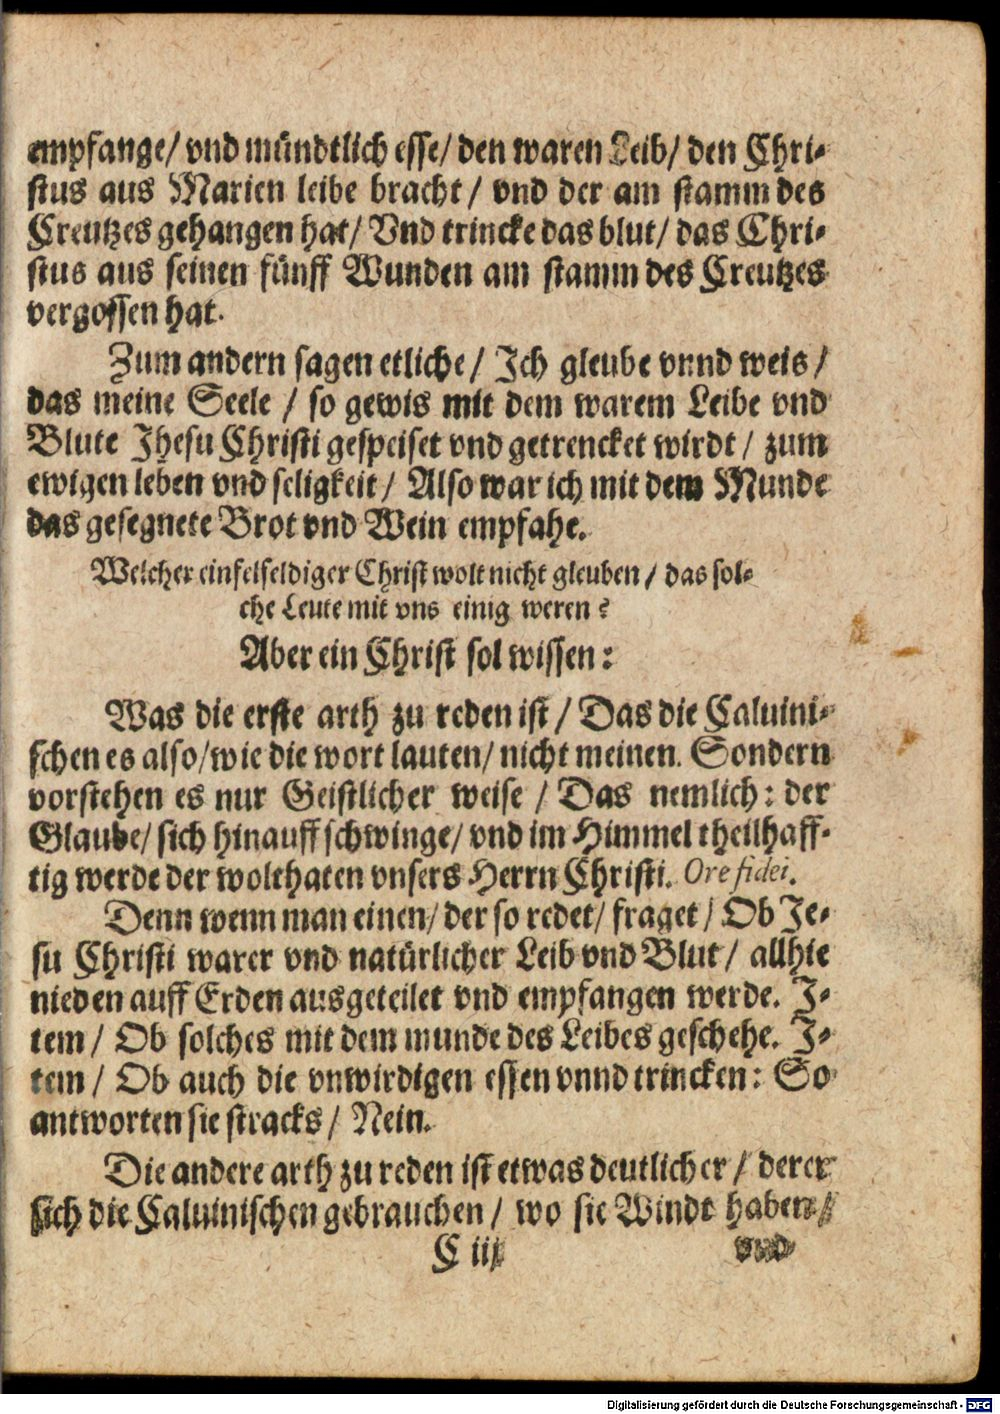 empfange/ vnd mündtlich esse/ den waren Leib/ den Chri-
stus aus Marien leibe bracht/ vnd der am stamm des
Creutzes gehangen hat/ Vnd trincke das blut/ das Chri-
stus aus seinen fünff Wunden am stamm des Creutzes
vergossen hat.
Zum andern sagen etliche/ Ich gleube vnnd weis/
das meine Seele/ so gewis mit dem warem Leibe vnd
Blute Jhesu Christi gespeiset vnd getrencket wirdt/ zum
ewigen leben vnd seligkeit/ Also war ich mit dem Munde
das gesegnete Brot vnd Wein empfahe.
Welcher einfelfeldiger Christ wolt nicht gleuben/ das sol-
che Leute mit vns einig weren?
Aber ein Christ sol wissen:
Was die erste arth zu reden ist/ Das die Caluini-
schen es also/ wie die wort lauten/ nicht meinen. Sondern
vorstehen es nur Geistlicher weise/ Das nemlich: der
Glaube/ sich hinauff schwinge/ vnd im Himmel theilhaff-
tig werde der wolthaten vnsers Herrn Christi. Ore fidei.
Denn wenn man einen/ der so redet/ fraget/ Ob Je-
su Christi warer vnd natürlicher Leib vnd Blut/ allhie
nieden auff Erden ausgeteilet vnd empfangen werde. I-
tem/ Ob solches mit dem munde des Leibes geschehe. I-
tem/ Ob auch die vnwirdigen essen vnnd trincken: So
antworten sie stracks/ Nein.
Die andere arth zu reden ist etwas deutlicher/ derer
sich die Caluinischen gebrauchen/ wo sie Windt haben/
C iij
vnd
Digitalisierung gefördert durch die Deutsche Forschungsgemeinschaft - DFG